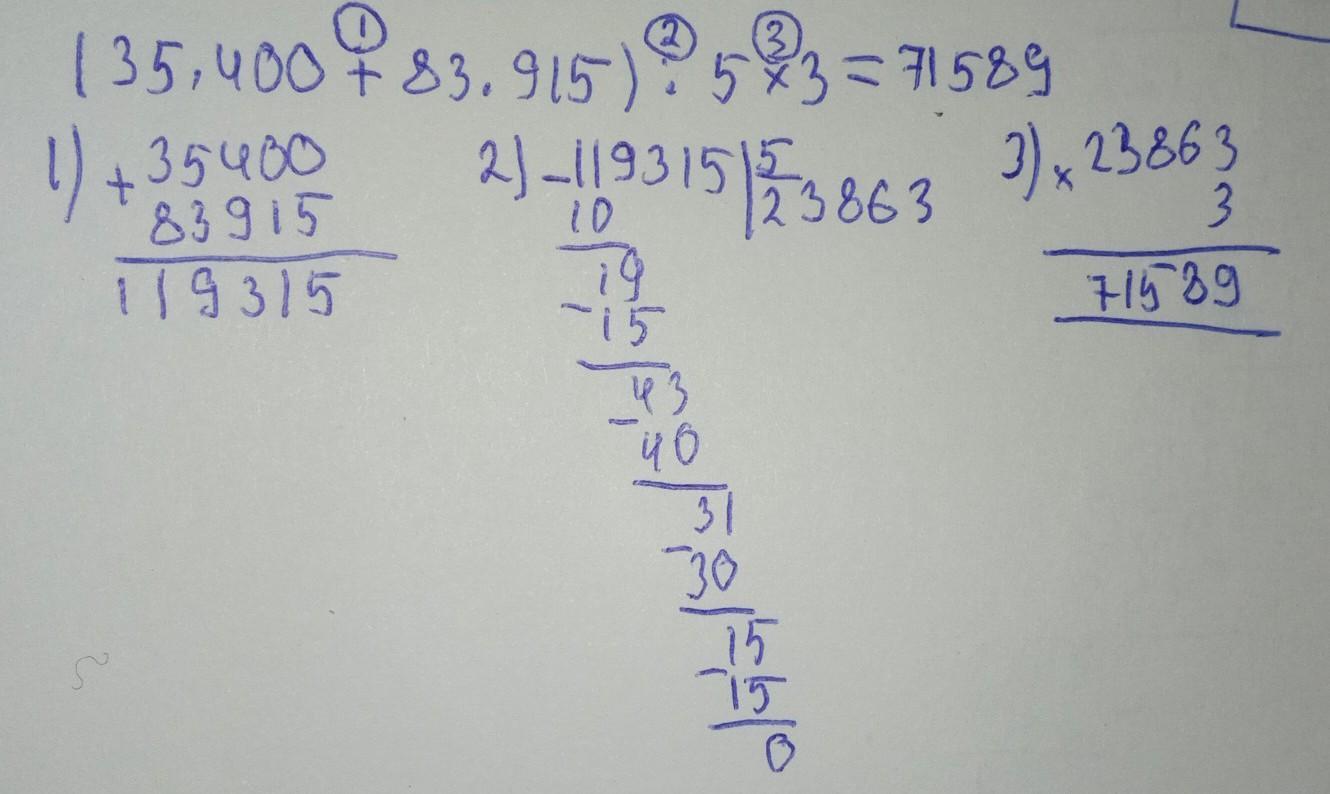 (35.400 + 83.915) : 5 × 3 = 71589
① ② ③
1) + 35400
83915
119315
2) - 119315 | 5
10 | 23863
19
- 15
43
- 40
31
- 30
15
- 15
0
3) × 23863
3
71589